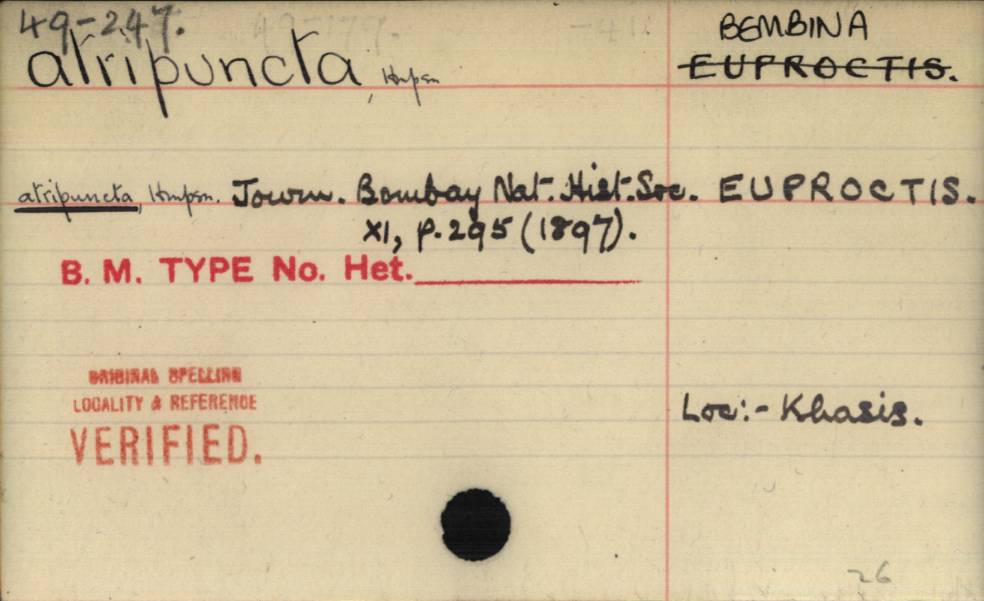 49-247.
BEMBINA
atripuncta, Hmpsn
EUPROCTIS.
atripuncta, Hmpsn. Journ. Bombay Nat. Hist. Soc. EUPROCTIS.
XI, p. 295 (1897).
B. M. TYPE No. Het.
ORIGINAL SPELLING
LOCALITY & REFERENCE
VERIFIED.
Loc:- Khasis.
26